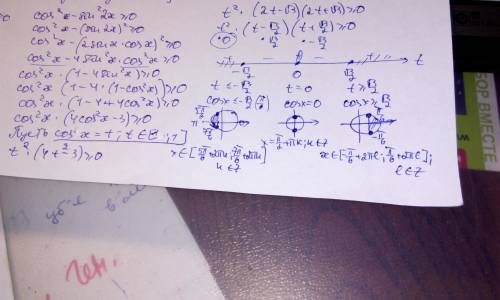 cos²x - sin²2x ≥ 0
cos²x - (sin2x)² ≥ 0
cos²x - (2sinx·cosx)² ≥ 0
cos²x - 4sin²x·cos²x ≥ 0
cos²x · (1 - 4sin²x) ≥ 0
cos²x · (1 - 4·(1 - cos²x)) ≥ 0
cos²x · (1 - 4 + 4cos²x) ≥ 0
cos²x · (4cos²x - 3) ≥ 0
Пусть cosx = t; t ∈ [-1;1]
t² · (4t² - 3) ≥ 0
t² · (2t - √3)(2t + √3) ≥ 0
t² · (t - √3/2)(t + √3/2) ≥ 0
·0 · √3/2 · -√3/2
+ - - + t
-√3/2 0 √3/2
t ≤ -√3/2 t = 0 t ≥ √3/2
cosx ≤ -√3/2 cosx = 0 cosx ≥ √3/2
5π/6 π/6
π -π/6
x ∈ [5π/6 + 2πk; 7π/6 + 2πk] x = π/2 + πk; k ∈ Z x ∈ [-π/6 + 2πl; π/6 + 2πl];
k ∈ Z l ∈ Z